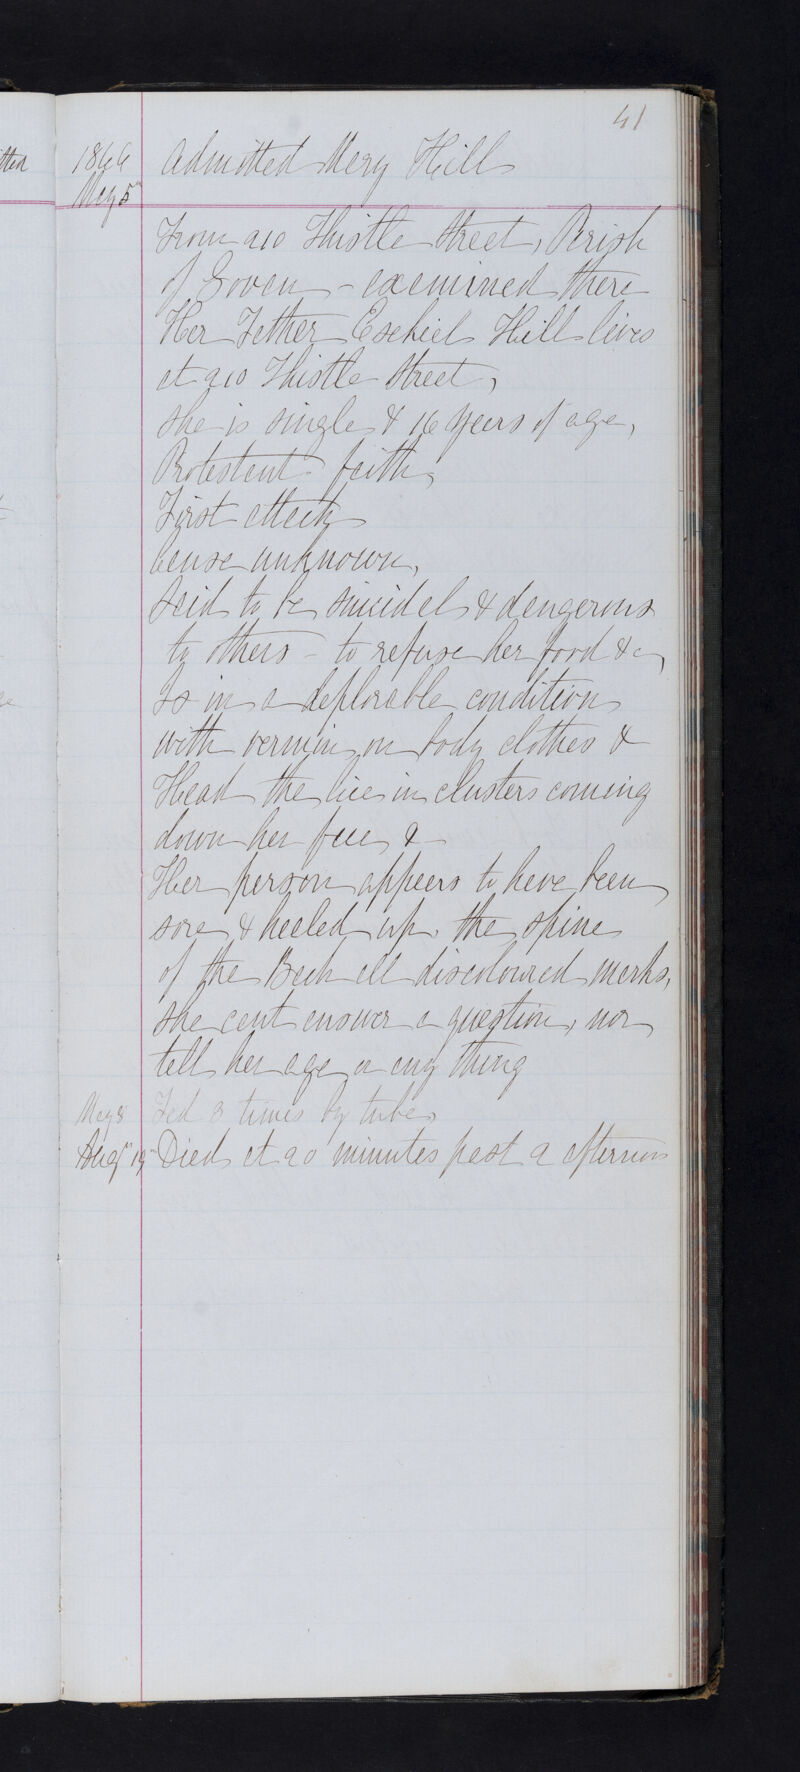 41
1866 Admitted Mary Hill
May 5th
From 210 Thistle Street, Parish
of Govan - examined there
Her Father Ezekiel Hill lives
at 210 Thistle Street,
she is single & 16 years of age,
Protestant faith,
First attack
Cause unknown,
said to be suicidal & dangerous
to others - to refuse her food &c,
Is in a deplorable condition
with vermin on body clothes &
Head the lice in clusters coming
down her face &
Her person appears to have been
sore & healed up. the spine
of the Back all discoloured marks,
she cant answer a question, nor
tell her age or any thing
May 8 Fed 3 times by tube,
Augt 19 Died at 20 minutes past 2 afternoon